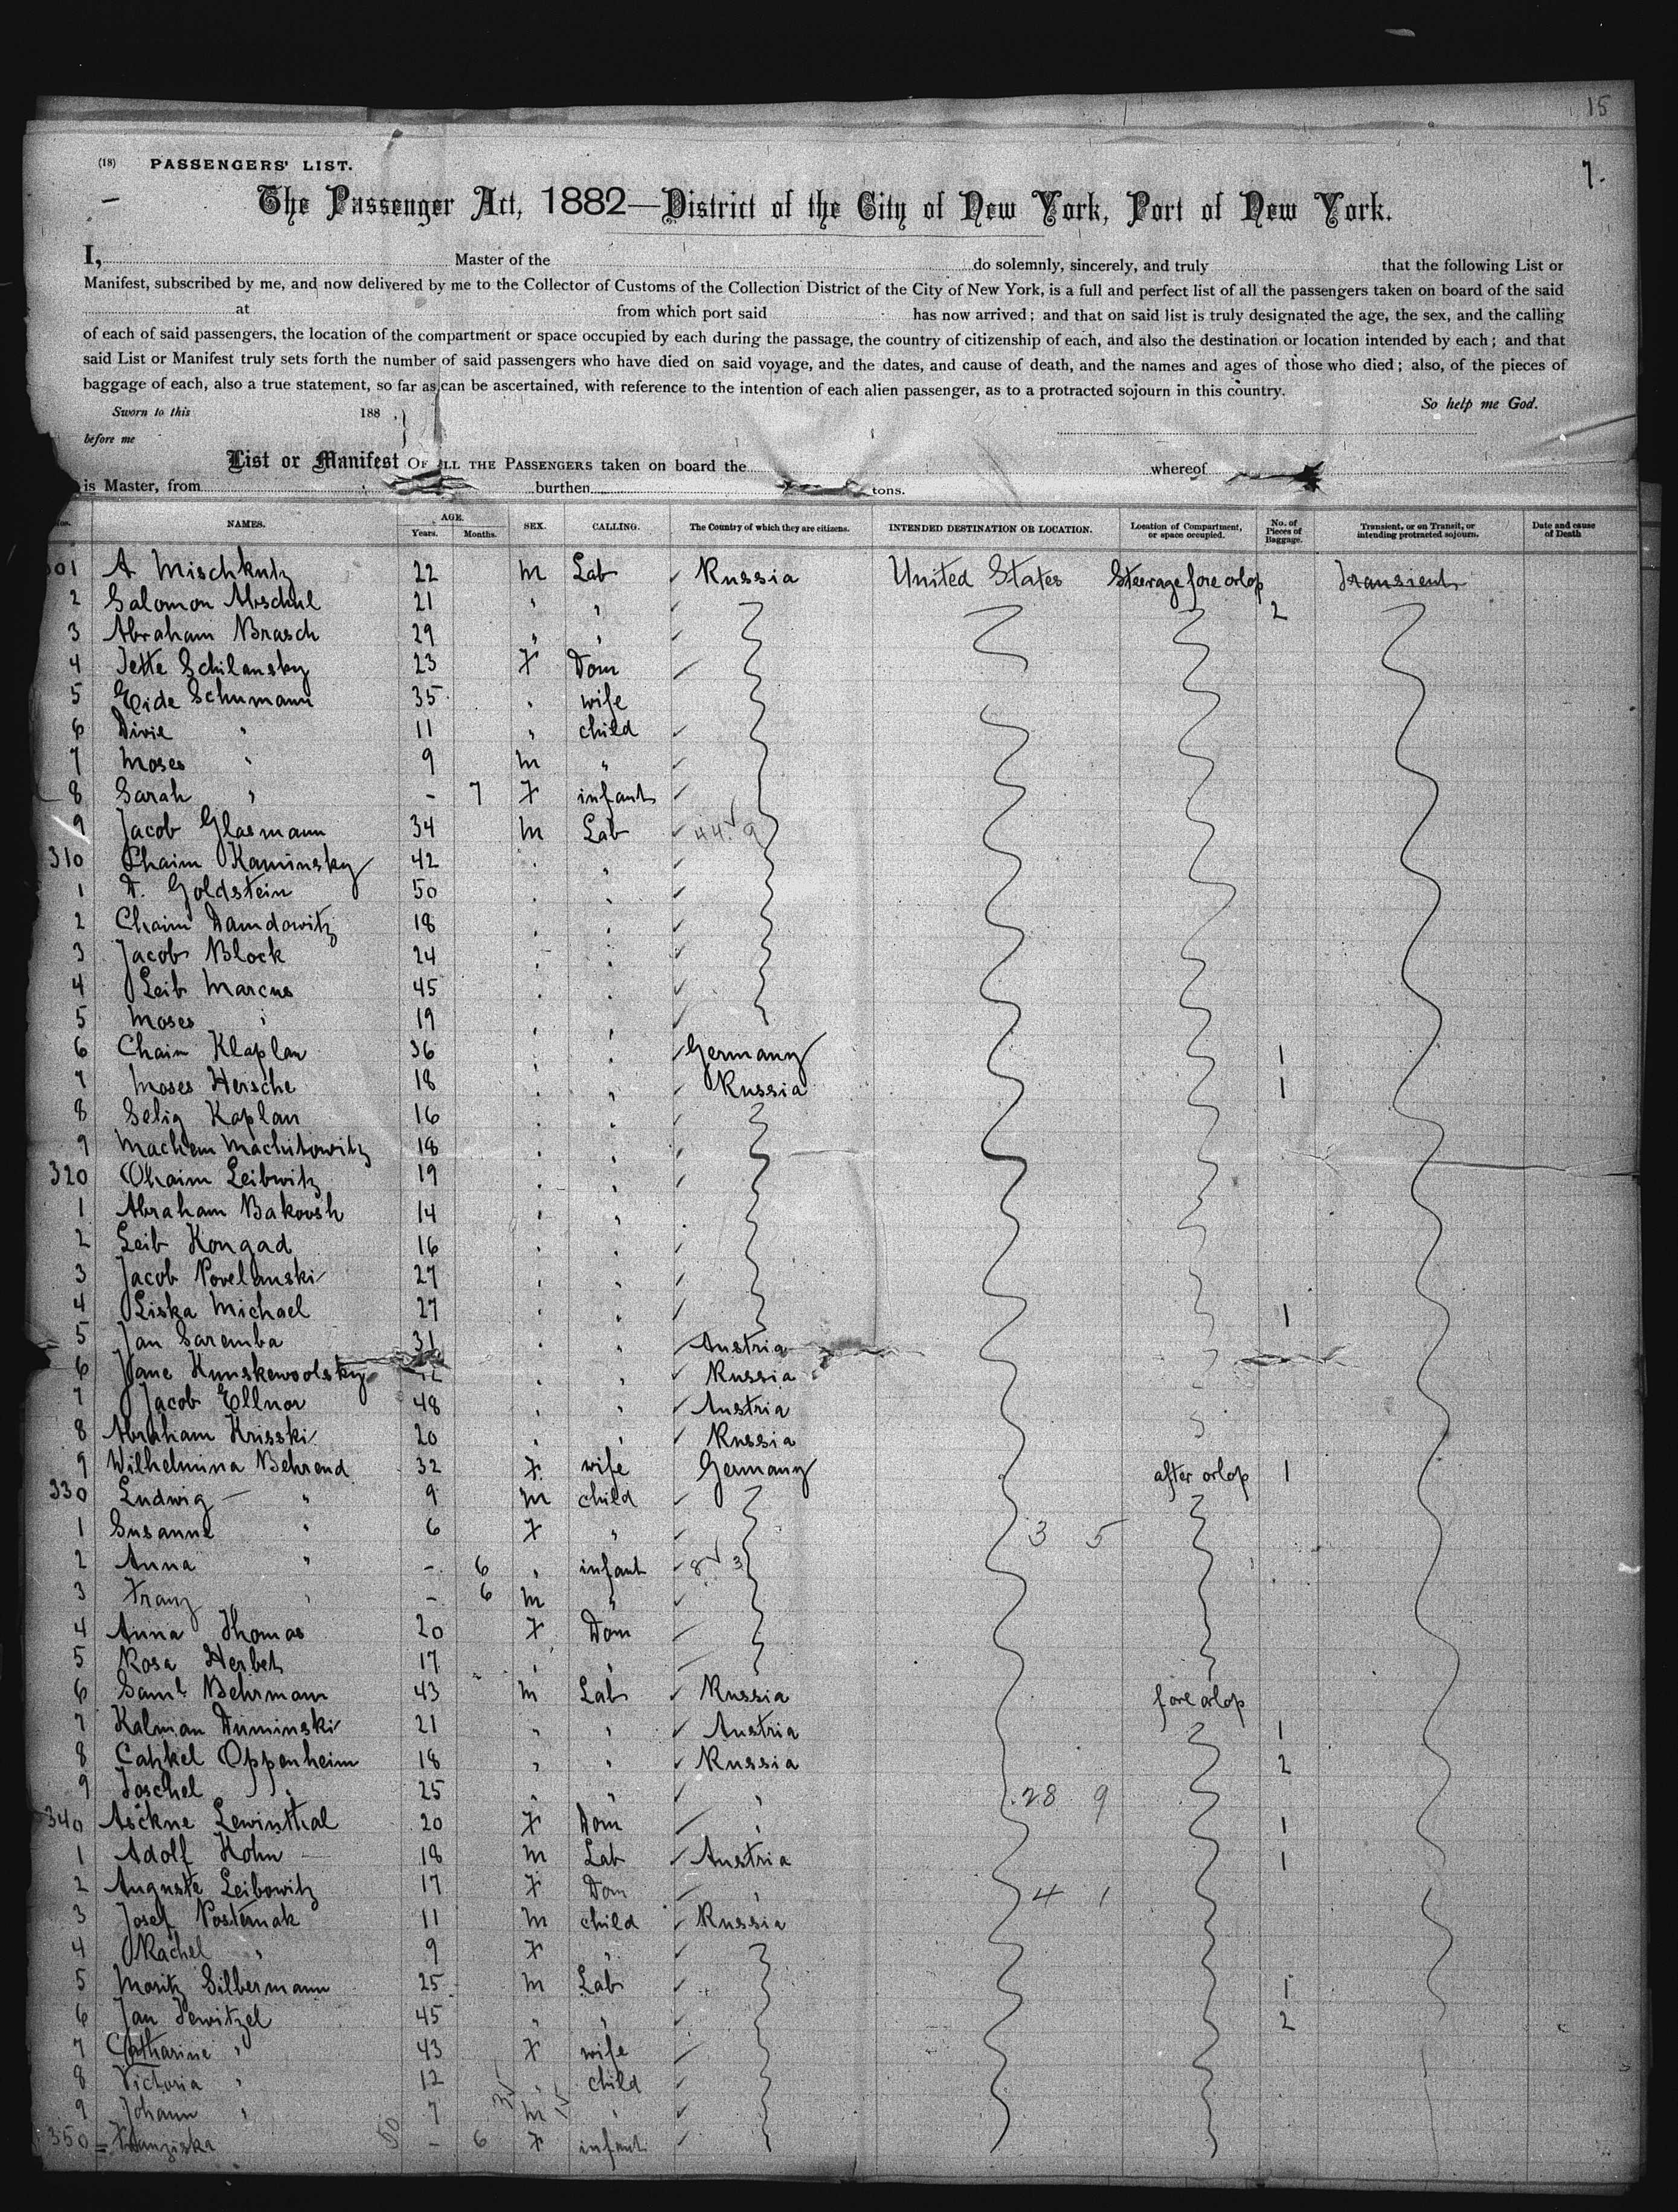 15
(18) PASSENGERS' LIST.
7.
The Passenger Act, 1882—District of the City of New York, Port of New York.
I, Master of the do solemnly, sincerely, and truly that the following List or
Manifest, subscribed by me, and now delivered by me to the Collector of Customs of the Collection District of the City of New York, is a full and perfect list of all the passengers taken on board of the said
at from which port said has now arrived; and that on said list is truly designated the age, the sex, and the calling
of each of said passengers, the location of the compartment or space occupied by each during the passage, the country of citizenship of each, and also the destination or location intended by each; and that
said List or Manifest truly sets forth the number of said passengers who have died on said voyage, and the dates, and cause of death, and the names and ages of those who died; also, of the pieces of
baggage of each, also a true statement, so far as can be ascertained, with reference to the intention of each alien passenger, as to a protracted sojourn in this country.
Sworn to this 188 So help me God.
before me
List or Manifest OF ALL THE PASSENGERS taken on board the whereof
is Master, from burthen tons.
Nos. NAMES. AGE. Years. Months. SEX. CALLING. The Country of which they are citizens. INTENDED DESTINATION OR LOCATION. Location of Compartment, or space occupied. No. of Pieces of Baggage. Transient, or on Transit, or intending protracted sojourn. Date and cause of Death
301 A Mischkutz 22 m Lab Russia United States Steerage fore orlop Transient
2 Salomon Abschul 21 " " 2
3 Abraham Brasch 29 " "
4 Jette Schilansky 23 F Dom
5 Eide Schumann 35 " wife
6 Divie " 11 " child
7 Moses " 9 m "
8 Sarah " - 7 F infant
9 Jacob Glasmann 34 m Lab 44 9
310 Chaim Kaminsky 42 " "
1 D. Goldstein 50 " "
2 Chaim Damdowitz 18 " "
3 Jacob Block 24 " "
4 Leib Marcus 45 " "
5 Moses " 19 " "
6 Chain Klaplan 36 " " Germany 1
7 Moses Hersche 18 " " Russia 1
8 Selig Kaplan 16 " "
9 Machem Machitowitz 18 " "
320 Chaim Leibwitz 19 " "
1 Abraham Bakovsh 14 " "
2 Leib Kongad 16 " "
3 Jacob Povelanski 27 " "
4 Liska Michael 27 " " 1
5 Jan Saremba 31 " " Austria
6 Jane Kunskewoolsky " " Russia
7 Jacob Ellnor 48 " " Austria
8 Abraham Krisski 20 " " Russia
9 Wilhelmina Behrend 32 F. wife Germany after orlop 1
330 Ludwig " 9 m child
1 Susanne " 6 F " 3 5
2 Anna " - 6 " infant 8 3
3 Franz " - 6 m "
4 Anna Thomas 20 F Dom
5 Rosa Herbet 17 " "
6 Saml Behrmann 43 m Lab Russia fore orlop
7 Kalman Duminski 21 " " Austria 1
8 Cahkel Oppenheim 18 " " Russia 2
9 Joschel " 25 " " " 28 9
340 Asckne Lewinthal 20 F Dom " 1
1 Adolf Kohn 18 m Lab Austria 1
2 Auguste Leibowitz 17 F Dom " 4 1
3 Josef Posternak 11 m child Russia
4 Rachel " 9 F "
5 Moritz Silbermann 25 m Lab 1
6 Jan Jewitzel 45 " " 2
7 Catharine " 43 F wife
8 Victoria " 12 " child
9 Johann " 7 35 m 15 "
350 Franziska 50 - 6 F infant